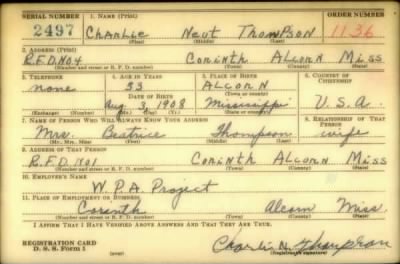 SERIAL NUMBER 1. NAME (Print) ORDER NUMBER
2497 CHARLIE NEUT THOMPSON 1136
(First) (Middle) (Last)
2. ADDRESS (Print)
R.F.D. No 4 Corinth Alcorn Miss
(Number and street or R. F. D. number) (Town) (County) (State)
3. TELEPHONE 4. AGE IN YEARS 5. PLACE OF BIRTH 6. COUNTRY OF CITIZENSHIP
none 33 Alcorn
DATE OF BIRTH (Town or county)
Aug 3, 1908 Mississippi U.S.A.
(Exchange) (Number) (Mo.) (Day) (Yr.) (State or country)
7. NAME OF PERSON WHO WILL ALWAYS KNOW YOUR ADDRESS 8. RELATIONSHIP OF THAT PERSON
Mrs. Beatrice Thompson wife
(Mr., Mrs., Miss) (First) (Middle) (Last)
9. ADDRESS OF THAT PERSON
R.F.D. No 1 Corinth Alcorn Miss
(Number and street or R. F. D. number) (Town) (County) (State)
10. EMPLOYER'S NAME
W.P.A. Project
11. PLACE OF EMPLOYMENT OR BUSINESS
Corinth Alcorn Miss.
(Number and street or R. F. D. number) (Town) (County) (State)
I AFFIRM THAT I HAVE VERIFIED ABOVE ANSWERS AND THAT THEY ARE TRUE.
REGISTRATION CARD
D. S. S. Form 1 (over) Charlie N. Thompson
(Registrant's signature)